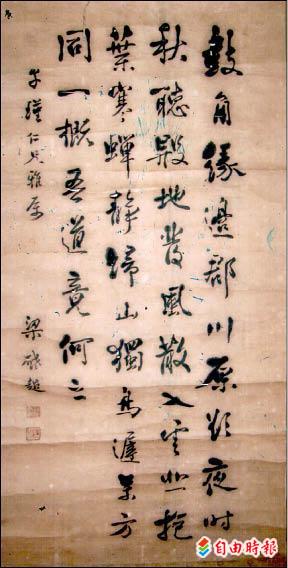 鼓角緣邊郡川原欲夜時
秋聽殷地發風散入雲悲抱
葉寒蟬靜歸山獨鳥遲萬方
同一概吾道竟何之
仁兄雅屬
梁啟超
自由時報